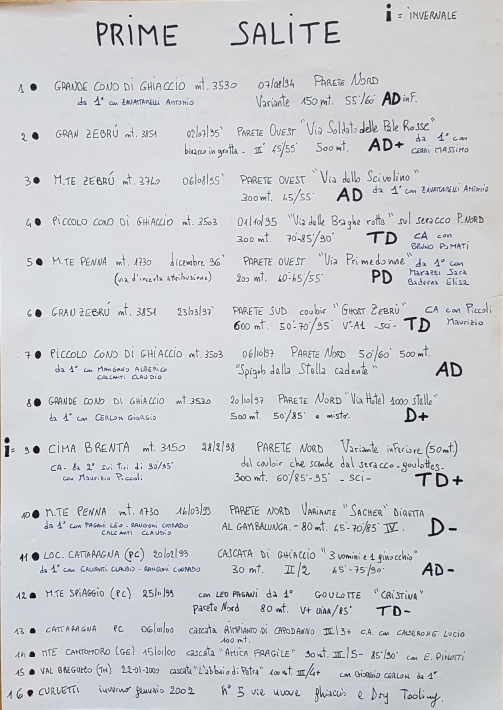 i = INVERNALE
PRIME SALITE
1 ● GRANDE CONO DI GHIACCIO mt. 3530 07/08/94 PARETE NORD
da 1° con ZAVATTARELLI ANTONIO Variante 150 mt. 55°/60° AD inf.
2 ● GRAN ZEBRÚ mt. 3851 02/07/95' PARETE OVEST "Via Soldato delle Pale Rosse"
bivacco in grotta - II° 45/55° 500 mt. AD+ da 1° con CERRI MASSIMO
3 ● M.TE ZEBRÚ mt. 3740 06/08/95' PARETE OVEST "Via dello Scivolino"
300 mt. 45/55° AD da 1° con ZAVATTARELLI ANTONIO
4 ● PICCOLO CONO DI GHIACCIO mt. 3503 01/10/95 "Via delle Braghe rotte" sul seracco P. NORD
300 mt. 70°-85°/90° TD CA con BRUNO POMATI
5 ● M.TE PENNA mt. 1730 dicembre 96' PARETE OVEST "Via Primedonne" da 1° con
(via d'incerta attribuzione) 200 mt. 40°-45/55° PD Marazzi Sara
Baderna Elisa
6 ● GRAN ZEBRÚ mt. 3851 23/03/97' PARETE SUD couloir "GHOST ZEBRÚ" CA con Piccoli
600 mt. 50°-70°/95° V°-A1 -sci- TD Maurizio
7 ● PICCOLO CONO DI GHIACCIO mt. 3503 06/10/97 PARETE NORD 50°/60° 500 mt.
da 1° con MANGANO ALBERICO "Spigolo della Stella cadente" AD
CALCANTI CLAUDIO
8 ● GRANDE CONO DI GHIACCIO mt. 3530 20/10/97 PARETE NORD "Via Hotel 1000 stelle"
da 1° con CERLON GIORGIO 500 mt. 50°/85° e misto. D+
i = 9 ● CIMA BRENTA mt. 3150 28/2/98 PARETE NORD Variante inferiore (50 mt.)
CA- da 2° sui tiri di 90/95° del couloir che scende dal seracco-goulottes-
con Maurizio Piccoli 300 mt. 60°/85°-95° - SCI - TD+
10 ● M.TE PENNA mt. 1730 16/03/99 PARETE NORD VARIANTE "SACHER" DIRETTA
da 1° con PAGANI LEO - RANGONI CORRADO AL GAMBALUNGA. - 80 mt. 45°-70/85° IV. D-
CALCANTI CLAUDIO
11 ● LOC. CATTARAGNA (PC) 20/02/99 CASCATA DI GHIACCIO "3 uomini e 1 ginocchio"
da 1° con CALCANTI CLAUDIO - RANGONI CORRADO 30 mt. II/2 45°-75°/90° AD-
12 ● M.TE SPIAGGIO (PC) 25/11/99 con LEO PAGANI da 1° GOULOTTE "CRISTINA"
parete Nord 80 mt. V+ /85° TD-
13 ● CATTARAGNA PC 06/01/00 cascata RIMPIANTO DI CAPODANNO IV/3+ C.A. con CALDERONE LUCIO
100 mt.
14 ● M.TE CANTOMORO (GE) 15/01/00 cascata "AMICA FRAGILE" 90 mt. III/5- 85°/90° con E. PINOTTI
15 ● VAL BREGUZZO (TN) 22-01-2000 cascata "L'abbaio di Petra" 100 mt. III/4+ con GIORGIO CERLON da 1°
16 ● CURLETTI inverno gennaio 2002 N° 5 vie nuove ghiaccio e Dry Tooling.